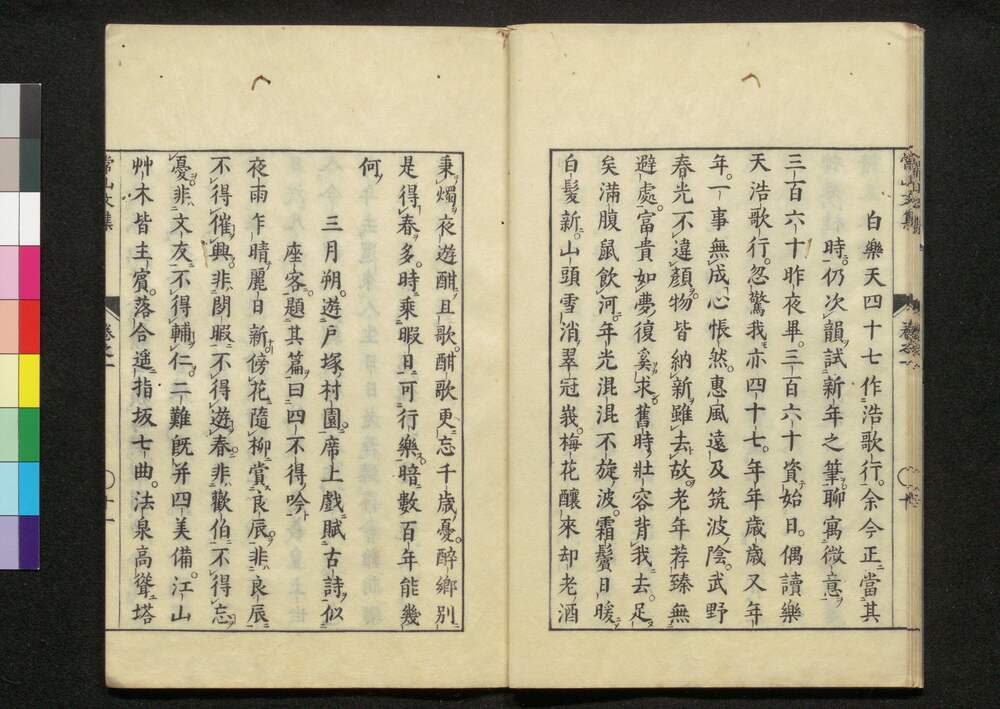 白樂天四十七作浩歌行。余今正當其
時。仍次韻試新年之筆。聊寓微意。
三百六十昨夜畢。三百六十資始日。偶讀樂
天浩歌行。忽驚我亦四十七。年年歳歳又年
年。一事無成心悵然。惠風遠及筑波陰。武野
春光不違顏。物皆納新雖去故。老年荐臻無
避處。富貴如夢復奚求。舊時壯容背我去。足
矣滿腹鼠飲河。年光混混不旋波。霜鬢日暖
白髮新。山頭雪消翠冠峩。梅花釀來却老酒
秉燭夜遊酣且歌。酣歌更忘千歳憂。醉鄉別
是得春多。時乘暇日可行樂。暗數百年能幾
何。
三月朔。遊戸塚村園。席上戲賦古詩。似
座客。題其篇曰四不得吟。
夜雨乍晴麗日新。傍花隨柳賞良辰。非良辰
不得催興。非閑暇不得遊春。非歡伯不得忘
憂。非文友不得輔仁。二難既并四美備。江山
艸木皆主賓。落合遥指坂七曲。法泉高聳塔
常山文集
卷之一
十
常山文集
卷之一
十一